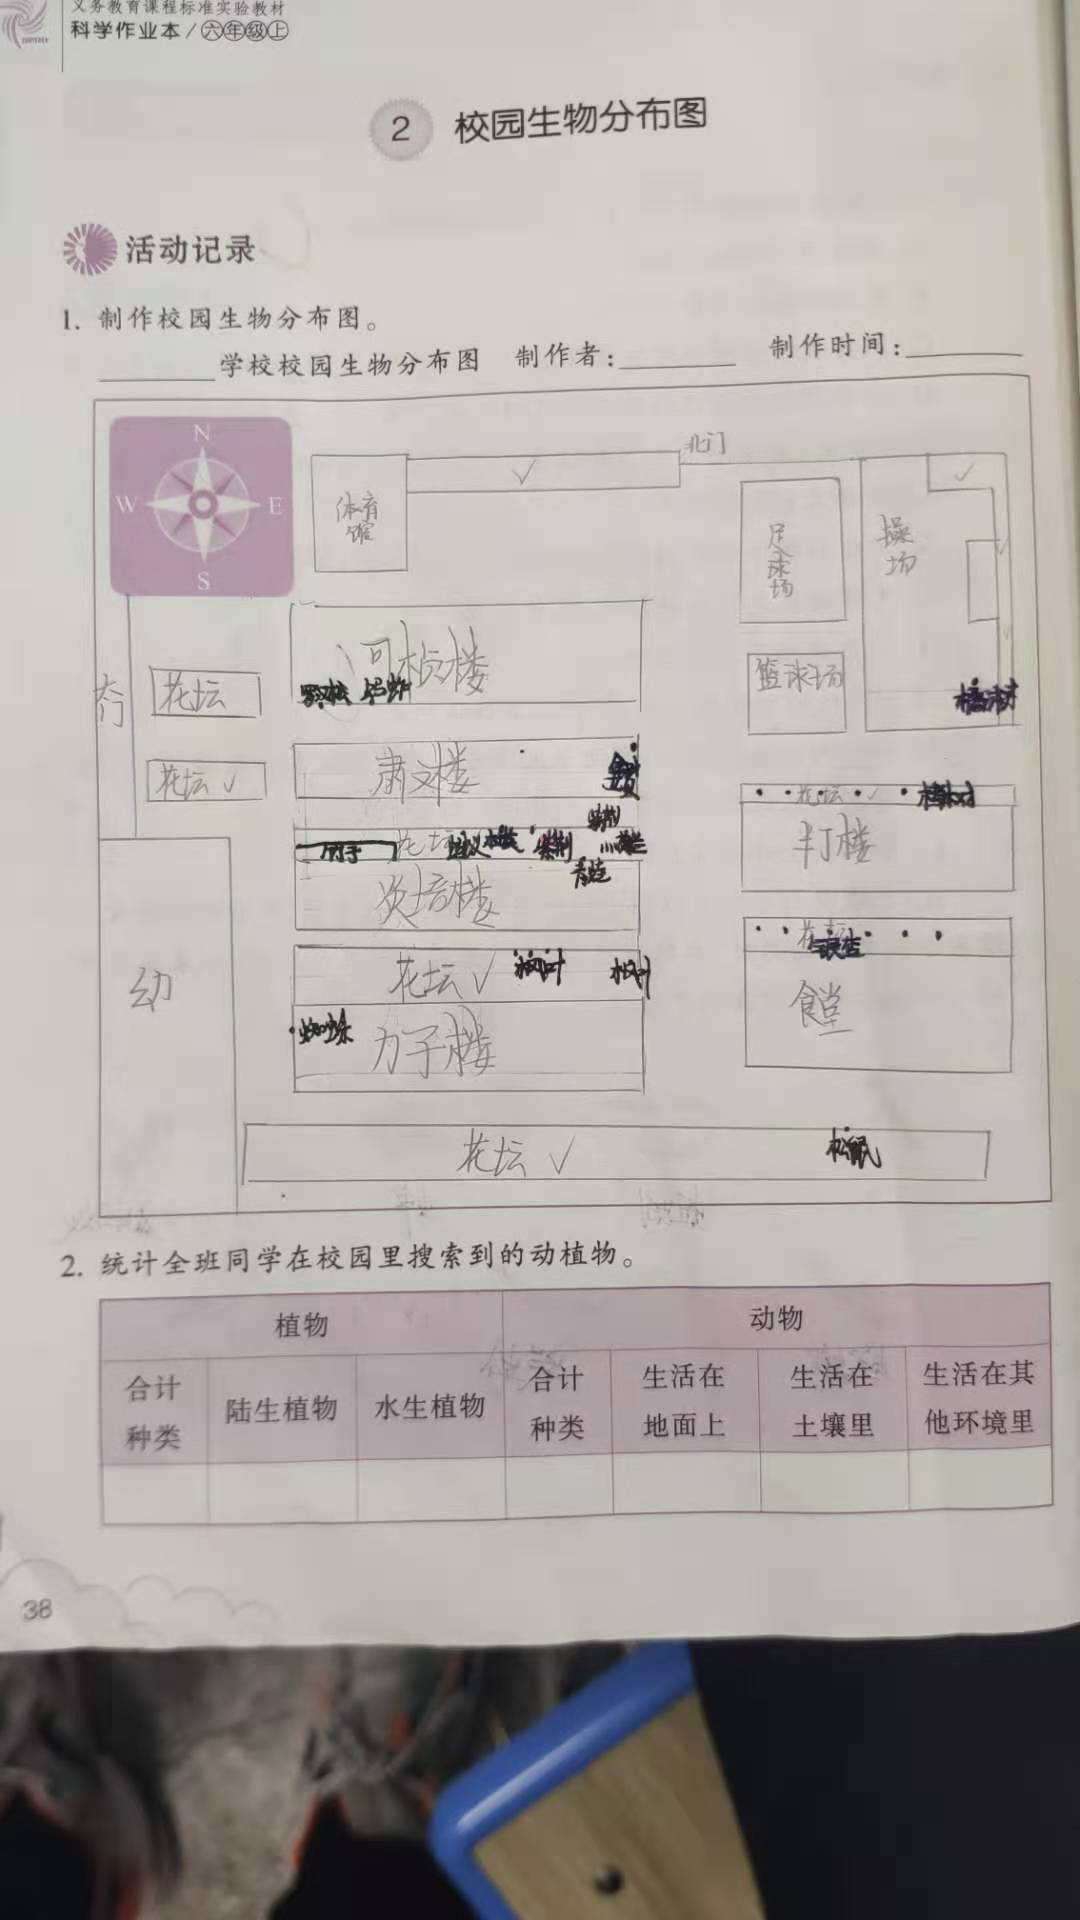 义务教育课程标准实验教材
科学作业本/六年级上
2 校园生物分布图
活动记录
1. 制作校园生物分布图。
学校校园生物分布图 制作者: 制作时间:
N
W E
S
北门
体育馆
足球场
操场
可桢楼
花坛
篮球场
橘树
花坛
肃文楼
花坛
竹子
花坛
紫荆
楼
花坛
枫叶
枫叶
银杏
幼
食堂
蜘蛛
力子楼
花坛
松鼠
2. 统计全班同学在校园里搜索到的动植物。
植物 动物
合计种类 陆生植物 水生植物 合计种类 生活在地面上 生活在土壤里 生活在其他环境里
38